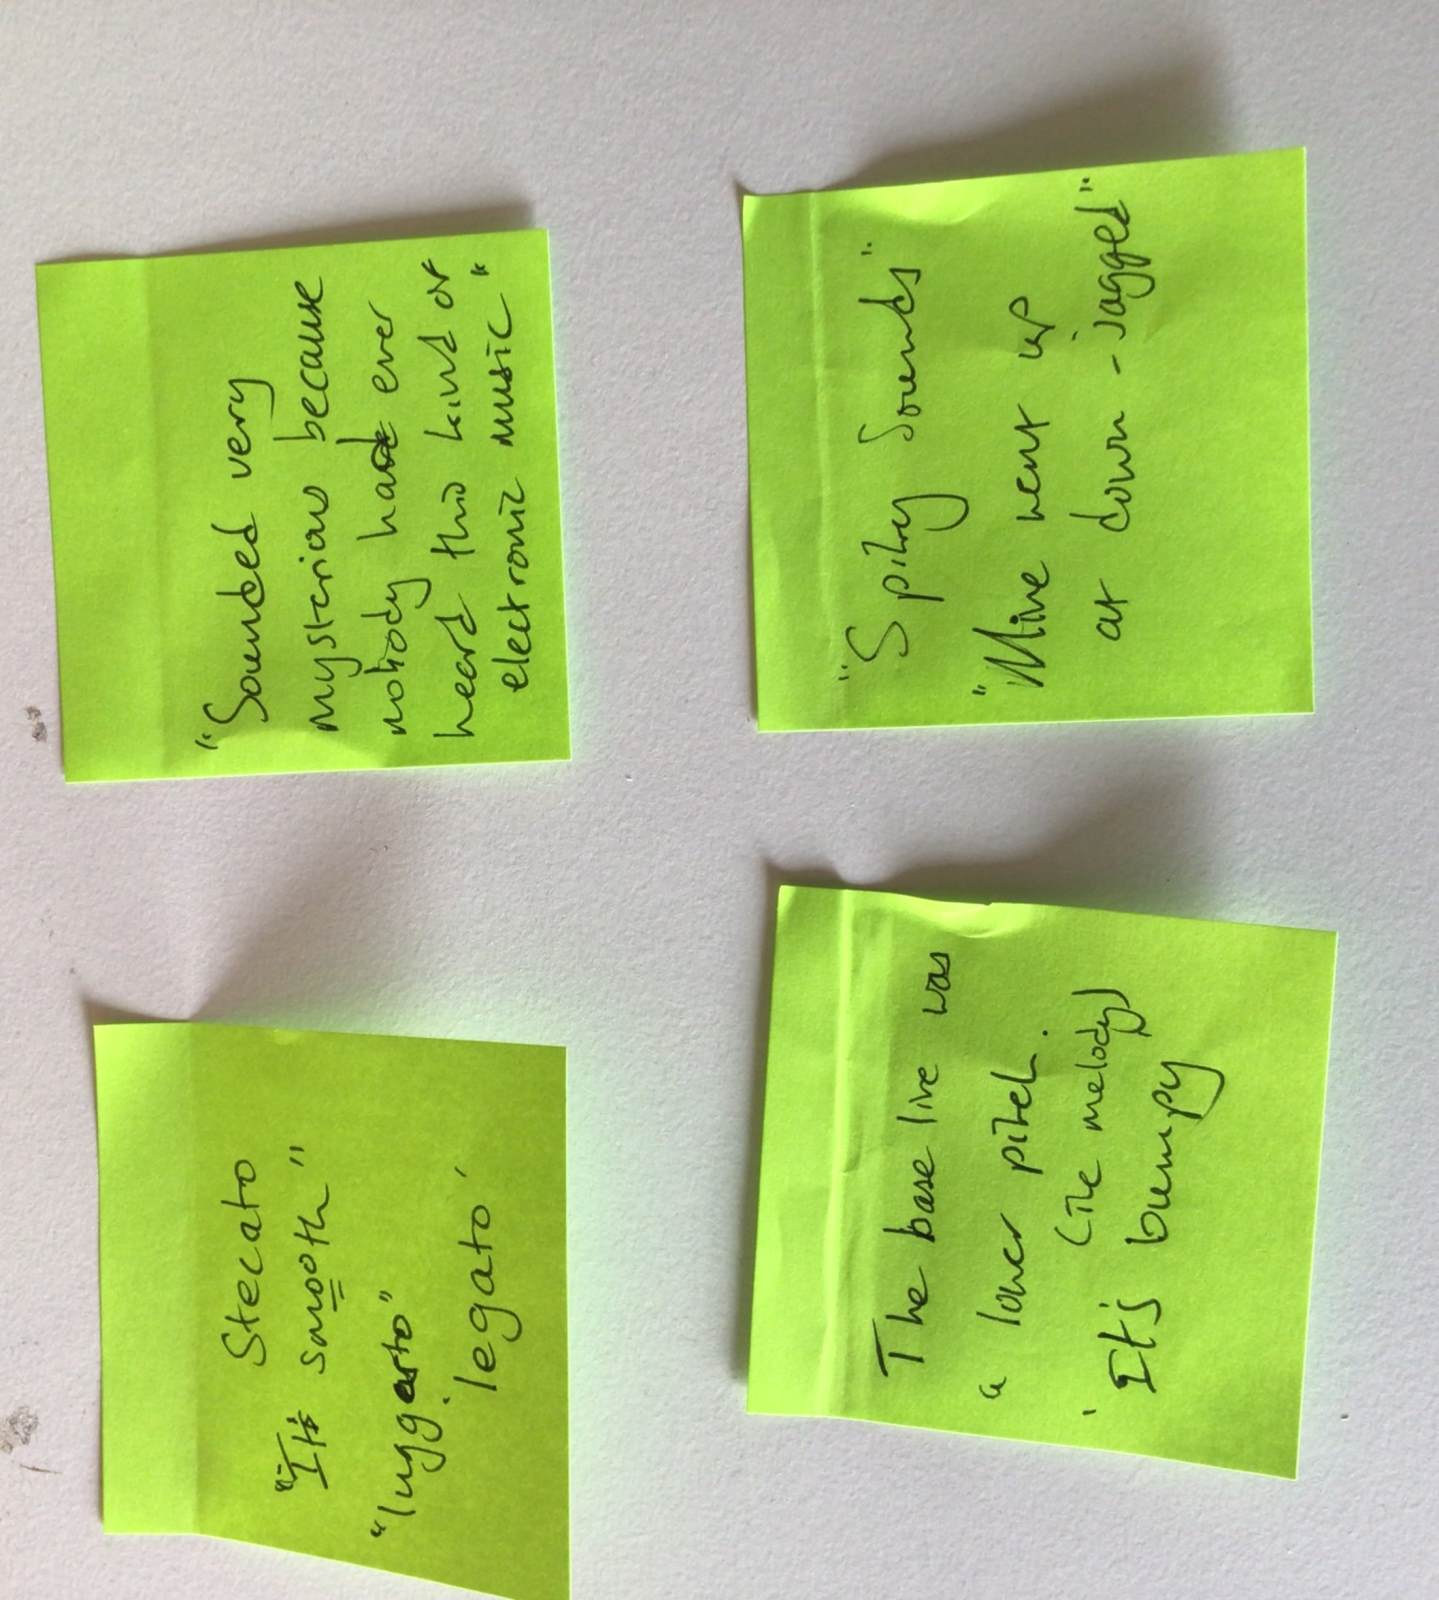 Stecato
"It's smooth"
"luggarto"
'legato'
"Sounded very
mysterious because
nobody have ever
heard this kind of
electronic music"
The base line was
a lower pitch.
(like melody)
'It's bumpy
"Spiky Sounds"
"Mline went up
at down - jagged"